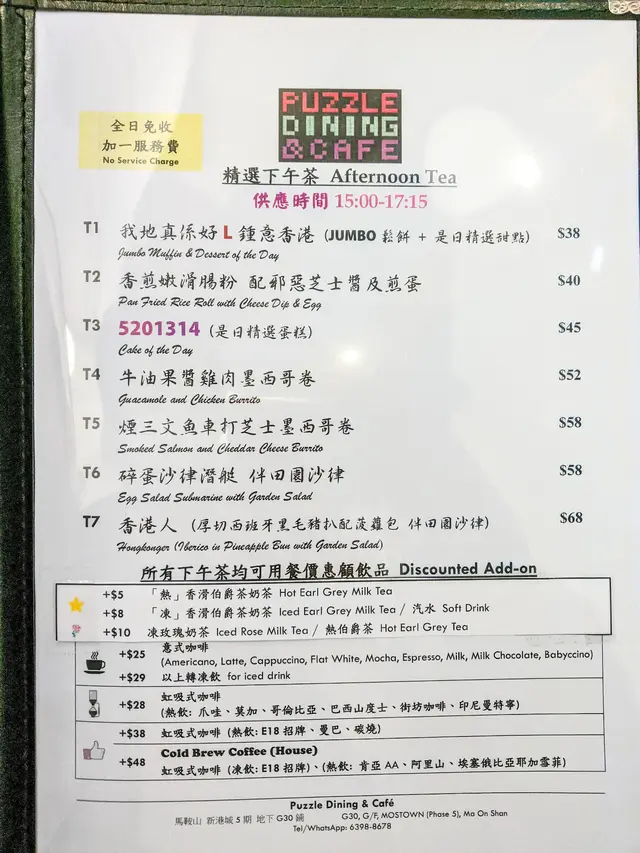 PUZZLE
DINING
& CAFE
全日免收
加一服務費
No Service Charge
精選下午茶 Afternoon Tea
供應時間 15:00-17:15
T1 我地真係好 L 鍾意香港 (JUMBO 鬆餅 + 是日精選甜點) $38
Jumbo Muffin & Dessert of the Day
T2 香煎嫩滑腸粉 配邪惡芝士醬及煎蛋 $40
Pan Fried Rice Roll with Cheese Dip & Egg
T3 5201314 (是日精選蛋糕) $45
Cake of the Day
T4 牛油果醬雞肉墨西哥卷 $52
Guacamole and Chicken Burrito
T5 煙三文魚車打芝士墨西哥卷 $58
Smoked Salmon and Cheddar Cheese Burrito
T6 碎蛋沙律潛艇 伴田園沙律 $58
Egg Salad Submarine with Garden Salad
T7 香港人 (厚切西班牙黑毛豬扒配菠蘿包 伴田園沙律) $68
Hongkonger (Iberico in Pineapple Bun with Garden Salad)
所有下午茶均可用餐價惠顧飲品 Discounted Add-on
+$5 「熱」香滑伯爵茶奶茶 Hot Earl Grey Milk Tea
+$8 「凍」香滑伯爵茶奶茶 Iced Earl Grey Milk Tea / 汽水 Soft Drink
+$10 凍玫瑰奶茶 Iced Rose Milk Tea / 熱伯爵茶 Hot Earl Grey Tea
+$25 意式咖啡
(Americano, Latte, Cappuccino, Flat White, Mocha, Espresso, Milk, Milk Chocolate, Babyccino)
+$29 以上轉凍飲 for iced drink
+$28 虹吸式咖啡
(熱飲: 爪哇、莫加、哥倫比亞、巴西山度士、街坊咖啡、印尼曼特寧)
+$38 虹吸式咖啡 (熱飲: E18 招牌、曼巴、碳燒)
+$48 Cold Brew Coffee (House)
虹吸式咖啡 (凍飲: E18 招牌)、(熱飲: 肯亞 AA、阿里山、埃塞俄比亞耶加雪菲)
Puzzle Dining & Café
馬鞍山 新港城 5 期 地下 G30 鋪 G30, G/F, MOSTOWN (Phase 5), Ma On Shan
Tel/WhatsApp: 6398-8678